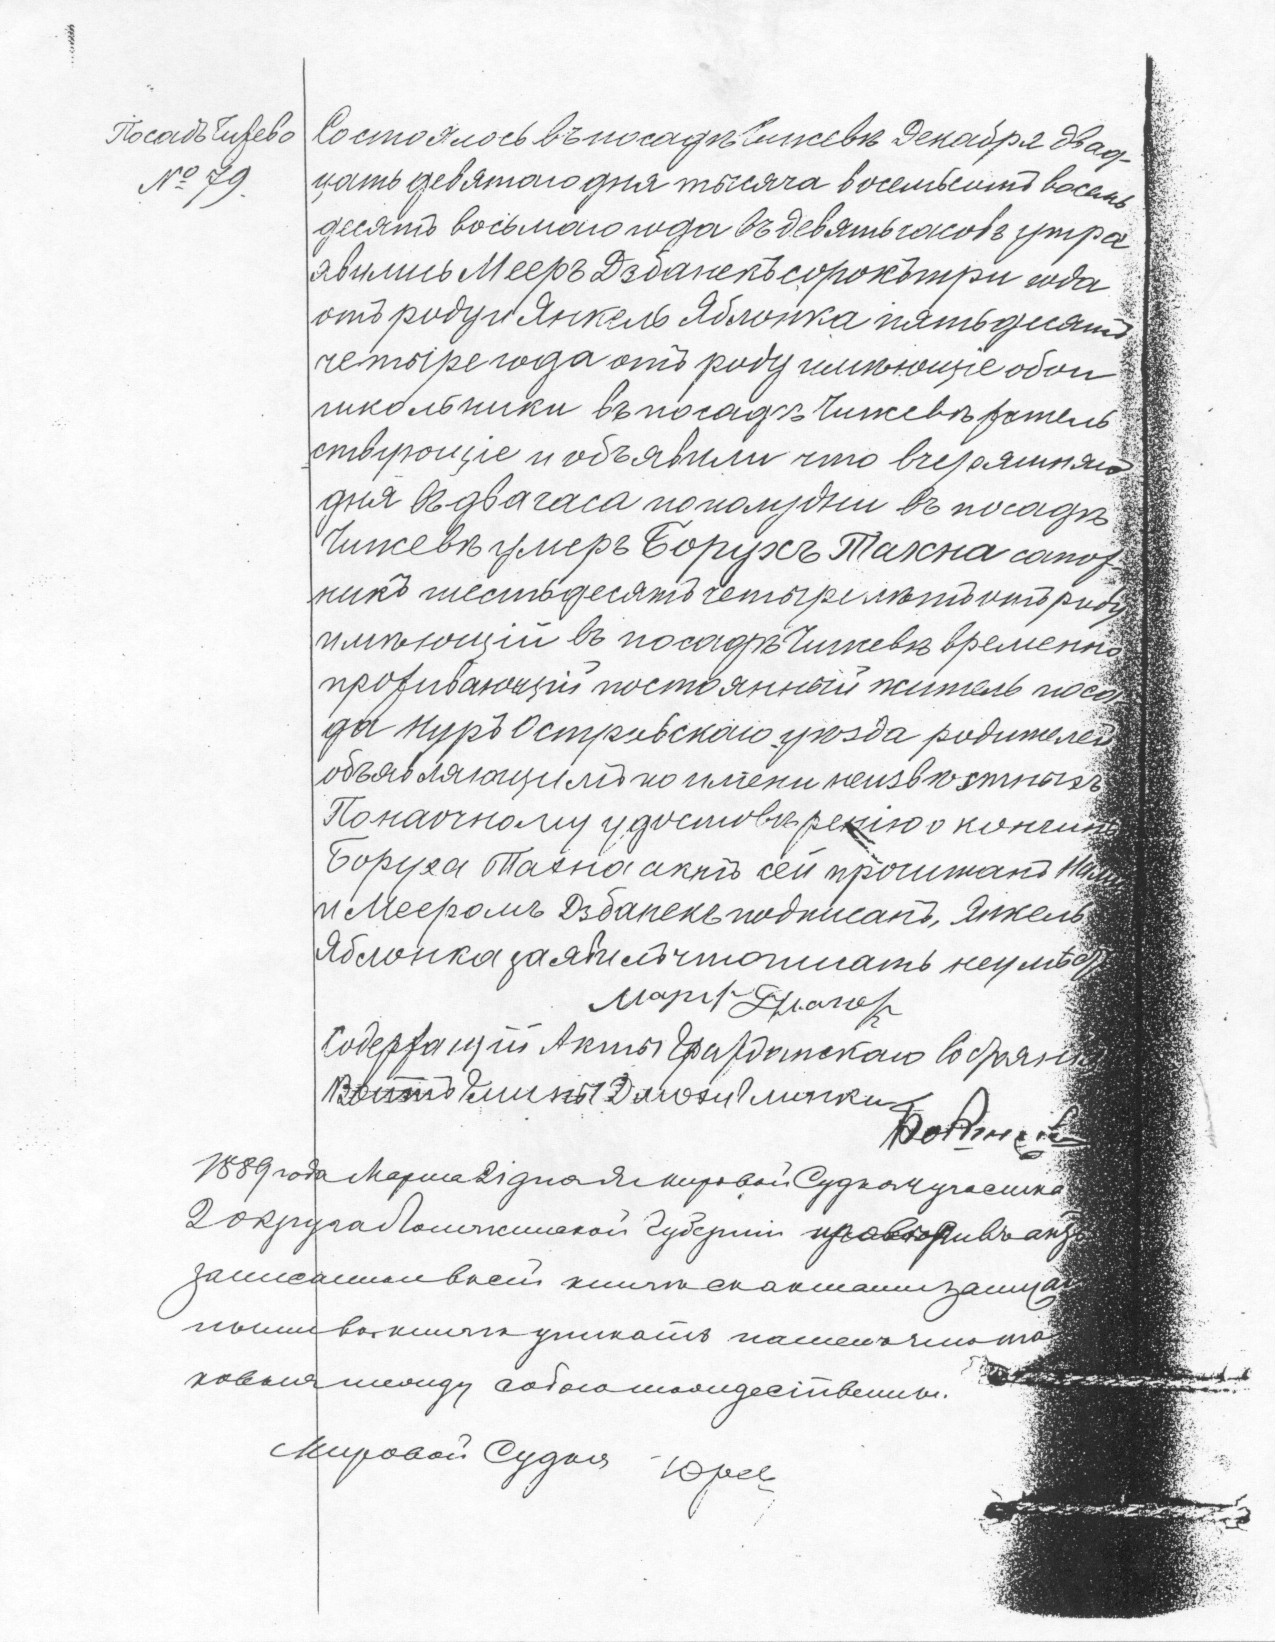 Посадъ Чижево
№ 79.
Состоялось въ посадѣ Чижевѣ Декабря двад-
цать девятаго дня тысяча восемьсотъ восемь
десятъ восьмаго года въ девять часовъ утра
явились Мееръ Дзбанекъ сорокъ три года
отъ роду и Янкель Яблонка пятьдесятъ
четыре года отъ роду имѣющіе обои
школьники въ посадѣ Чижевѣ житель
ствующіе и объявили что вчерашняго
дня въ два часа пополудни въ посадѣ
Чижевѣ умеръ Борухъ Тахна сапож
никъ шестьдесятъ четыре лѣтъ отъ роду
имѣющій въ посадѣ Чижевѣ временно
проживающій постоянный житель поса
да Нуръ Островскаго уѣзда родителей
объявляющимъ по имени неизвѣстныхъ
По наочному удостовѣренію о кончинѣ
Боруха Тахна актъ сей прочитанъ Нами
и Мееромъ Дзбанекъ подписанъ, Янкель
Яблонка заявилъ что писать неумѣетъ
Содержащій Акты Гражданскаго Состоянія
Войтъ Гмины
1889 года Марта 21 дня я Мировой Судья участка
2 округа Ломжинской Губерніи провѣривъ акты
записанные въ сей книгѣ съ актами записан
ными въ книгѣ уникатъ нашелъ что та
ковыя между собою тождественны.
Мировой Судья